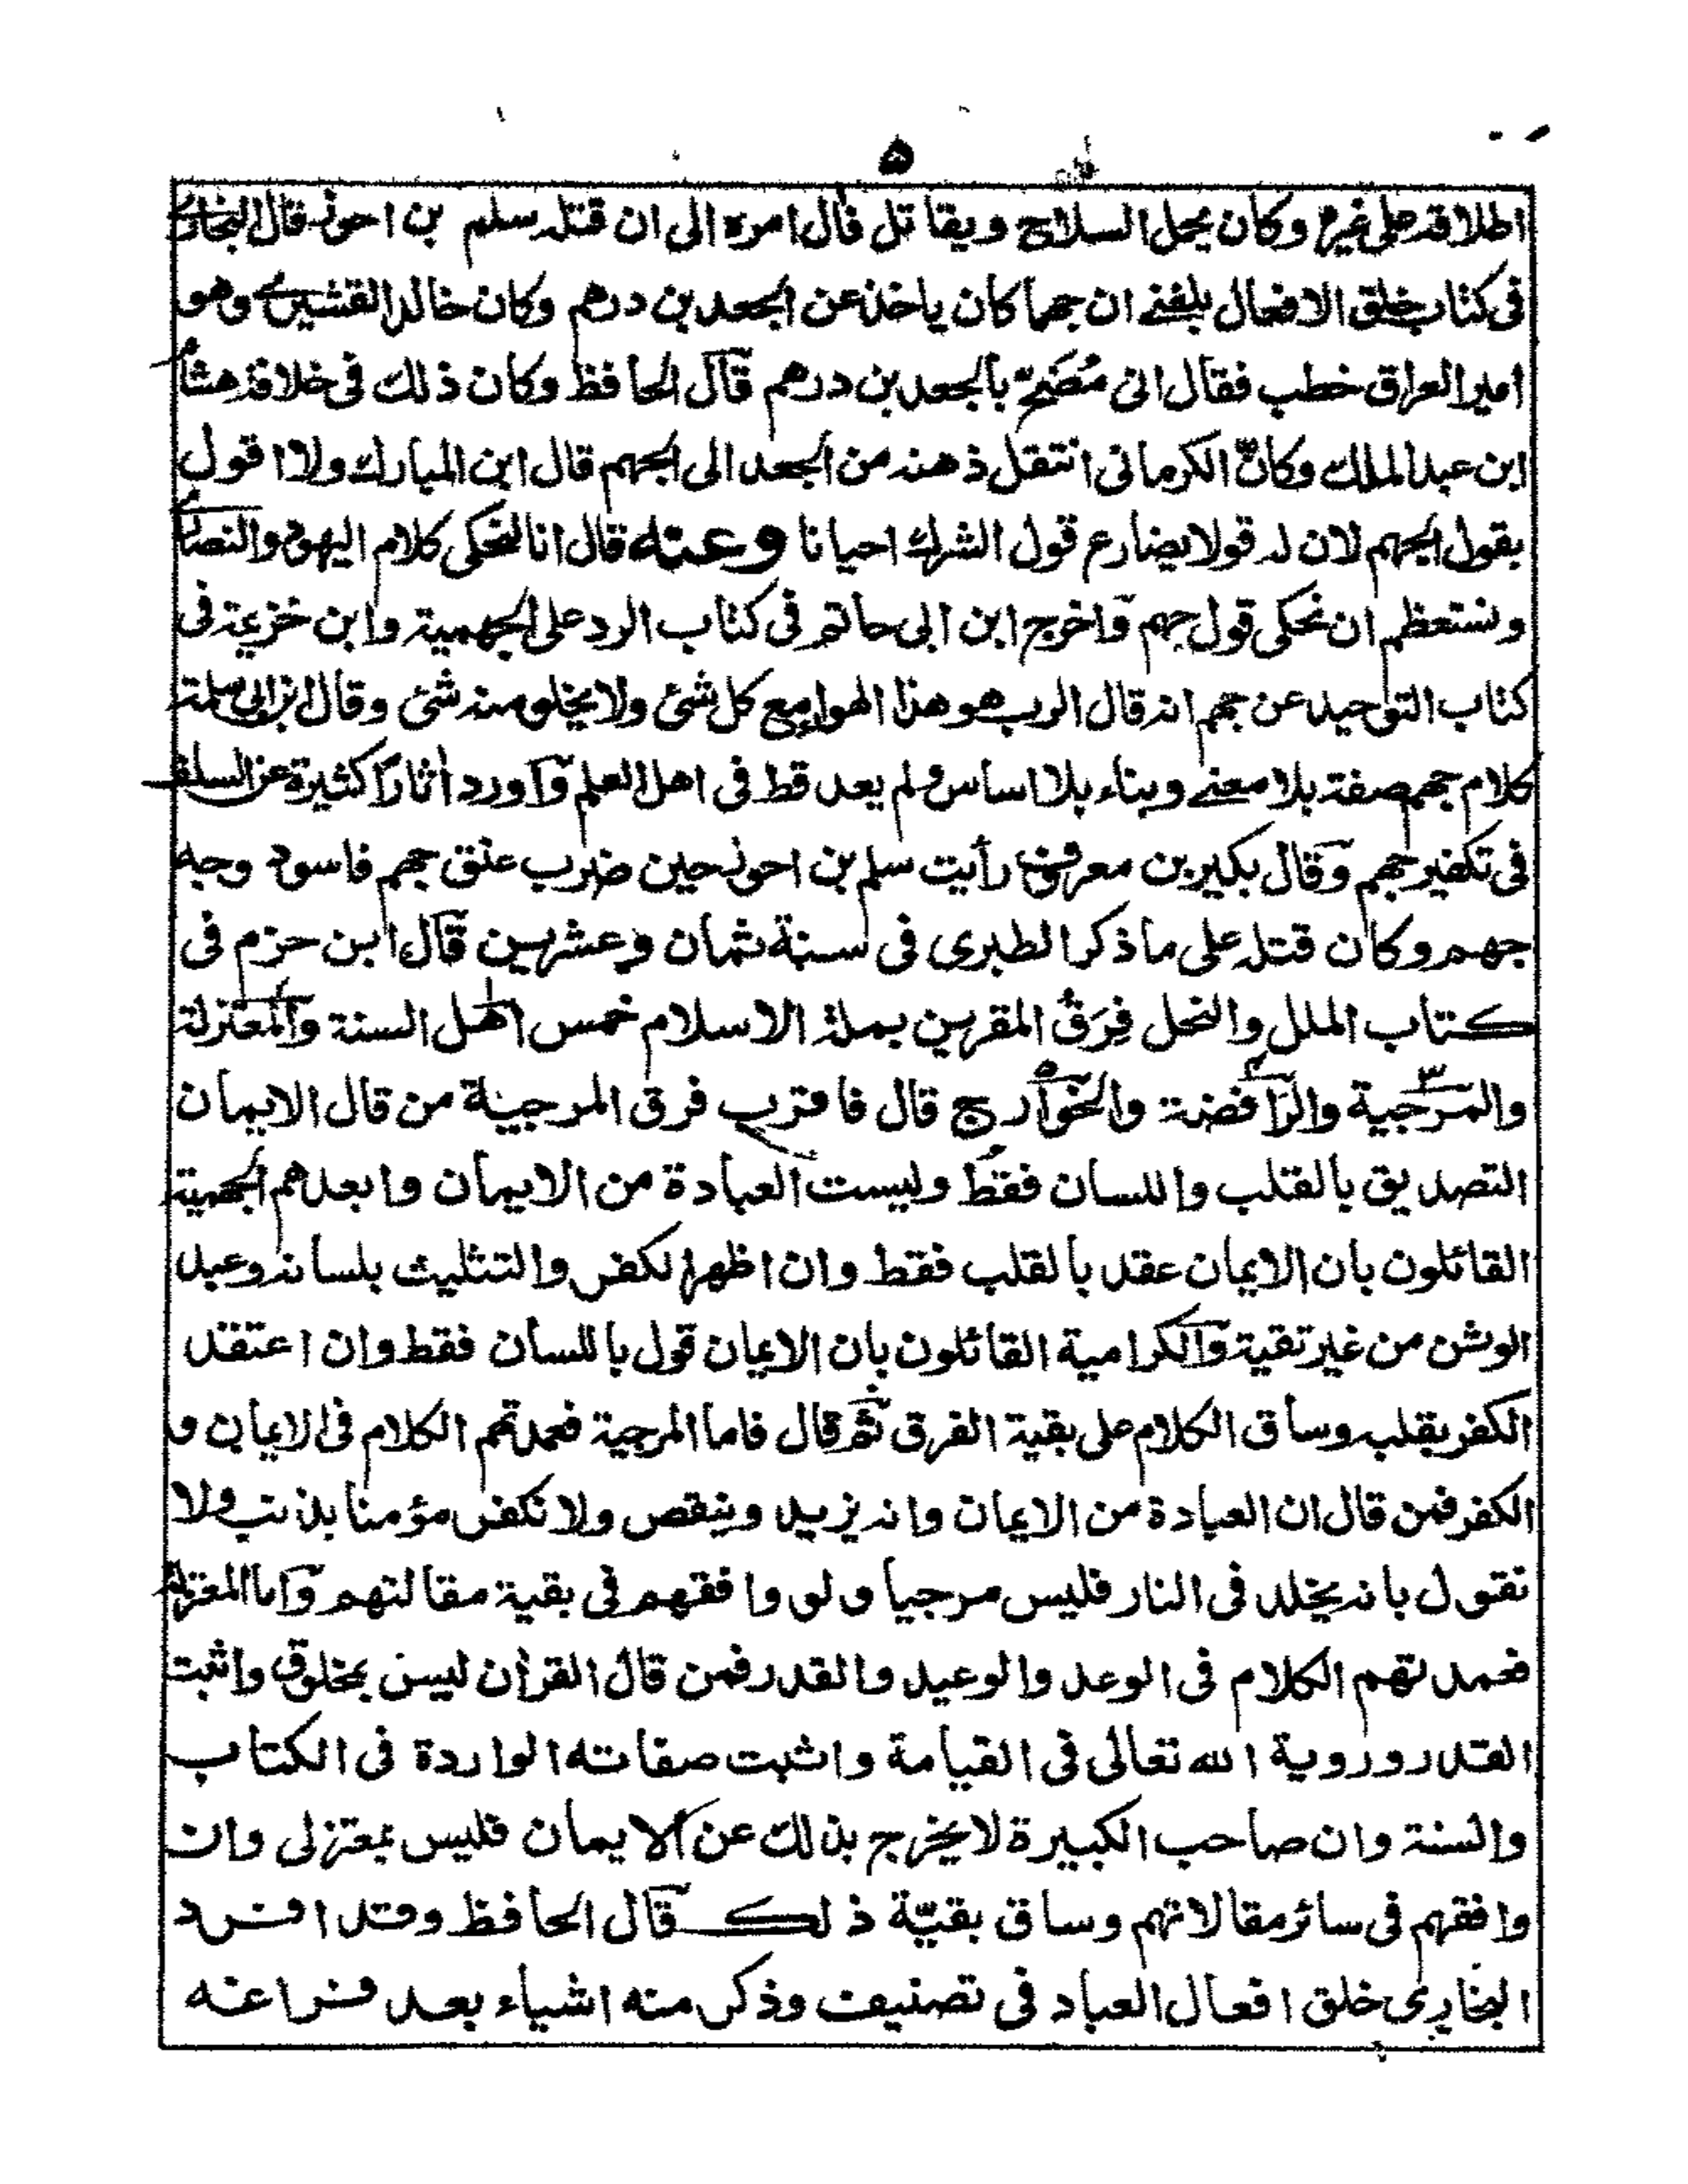 ۵
اطلاقه على غيره وكان يحمل السلاح ويقاتل فال امره الى ان قتله سلم بن احوز قال البخارى
فى كتاب خلق الافعال بلغنے ان جهما كان ياخذ عن الجعد بن درهم وكان خالد القشيرے وهو
امير العراق خطب فقال انى مُضَحٍّ بالجعد بن درهم قال الحافظ وكان ذلك فى خلافة هشام
ابن عبد الملك وكانّ الكرمانى انتقل ذهنه من الجعد الى الجهم قال ابن المبارك ولا اقول
بقول الجهم لان له قولا يضارع قول الشرك احيانا وعنه قال انا لنحكى كلام اليهود والنصارے
ونستعظم ان نحكى قول جهم واخرج ابن ابى حاتم فى كتاب الرد على الجهمية وابن خزيمة فى
كتاب التوحيد عن جهم انه قال الرب هو هذا الهوا مع كل شئ ولا يخلو منه شئ وقال بن ابى سلمة
كلام جهم صفة بلا معنے وبناء بلا اساس ولم يعد قط فى اهل العلم واورد اٰثاراً كثيرة عن السلف
فى تكفير جهم وقال بكير بن معروف رأيت سلم بن احوز حين ضرب عنق جهم فاسود وجه
جهم وكان قتله على ما ذكر الطبرى فى سنة ثمان وعشرين قال ابن حزم فى
كتاب الملل والنحل فِرَقُ المقرين بملة الاسلام خمس اهل السنة والمعتزلة
والمرجية والرافضة والخوارج قال فاقرب فرق المرجية من قال الايمان
التصديق بالقلب واللسان فقط وليست العبادة من الايمان وابعدهم الجهمية
القائلون بان الايمان عقد بالقلب فقط وان اظهر الكفر والتثليث بلسانه وعبد
الوثن من غير تقية والكرامية القائلون بان الايمان قول باللسان فقط وان اعتقد
الكفر بقلبه وساق الكلام على بقية الفرق ثم قال فاما المرجية فعمدتهم الكلام فى الايمان و
الكفر فمن قال ان العبادة من الايمان وانه يزيد وينقص ولا نكفر مؤمنا بذنب ولا
نقول بانه يخلد فى النار فليس مرجيا ولو وافقهم فى بقية مقالتهم واما المعتزلة
فعمدتهم الكلام فى الوعد والوعيد والقدر فمن قال القرأن ليس بمخلوق واثبت
القدر وروية الله تعالى فى القيامة واثبت صفاته الواردة فى الكتاب
والسنة وان صاحب الكبيرة لا يخرج بذلك عن الايمان فليس بمعتزلى وان
وافقهم فى سائر مقالاتهم وساق بقيّة ذلك قال الحافظ وقد افرد
البخارى خلق افعال العباد فى تصنيف وذكر منه اشياء بعد فراغه